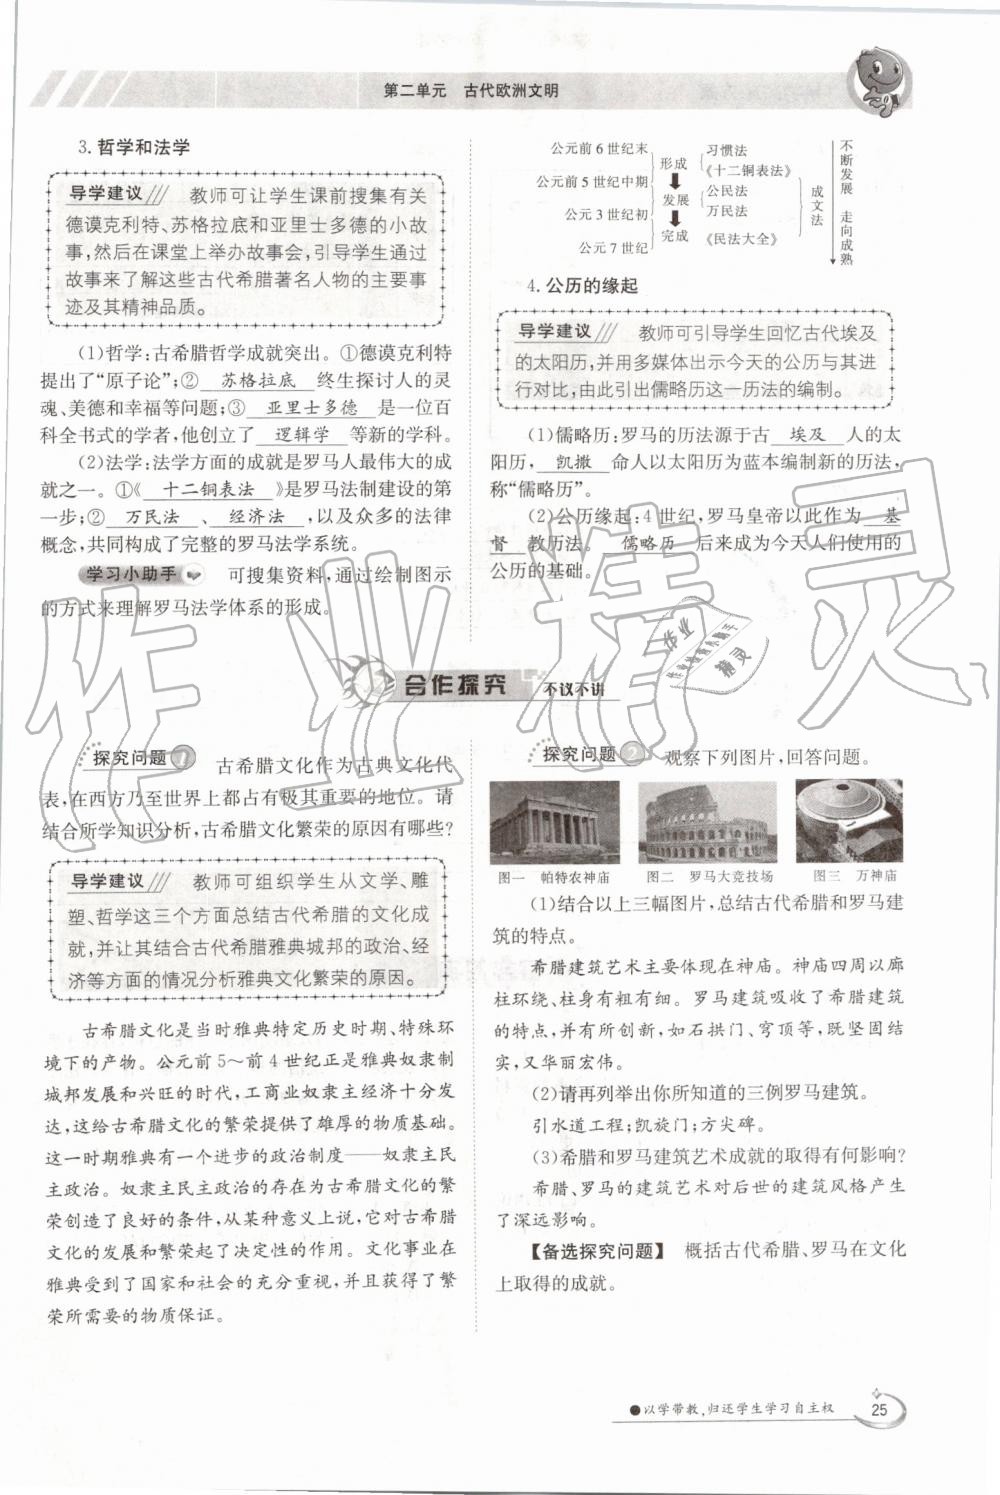 第二单元　古代欧洲文明
3. 哲学和法学
导学建议　教师可让学生课前搜集有关
德谟克利特、苏格拉底和亚里士多德的小故
事,然后在课堂上举办故事会,引导学生通过
故事来了解这些古代希腊著名人物的主要事
迹及其精神品质。
(1)哲学:古希腊哲学成就突出。①德谟克利特
提出了“原子论”;② 苏格拉底 终生探讨人的灵
魂、美德和幸福等问题;③ 亚里士多德 是一位百
科全书式的学者,他创立了 逻辑学 等新的学科。
(2)法学:法学方面的成就是罗马人最伟大的成
就之一。①《 十二铜表法 》是罗马法制建设的第
一步;② 万民法 、 经济法 ,以及众多的法律
概念,共同构成了完整的罗马法学系统。
学习小助手　可搜集资料,通过绘制图示
的方式来理解罗马法学体系的形成。
公元前6世纪末
公元前5世纪中期
公元3世纪初
公元7世纪
形成
发展
完成
习惯法
《十二铜表法》
公民法
万民法
《民法大全》
成文法
不断发展　走向成熟
4. 公历的缘起
导学建议　教师可引导学生回忆古代埃及
的太阳历,并用多媒体出示今天的公历与其进
行对比,由此引出儒略历这一历法的编制。
(1)儒略历:罗马的历法源于古 埃及 人的太
阳历, 凯撒 命人以太阳历为蓝本编制新的历法,
称“儒略历”。
(2)公历缘起:4世纪,罗马皇帝以此作为 基
督 教历法。 儒略历 后来成为今天人们使用的
公历的基础。
合作探究　不议不讲
探究问题1　古希腊文化作为古典文化代
表,在西方乃至世界上都占有极其重要的地位。请
结合所学知识分析,古希腊文化繁荣的原因有哪些?
导学建议　教师可组织学生从文学、雕
塑、哲学这三个方面总结古代希腊的文化成
就,并让其结合古代希腊雅典城邦的政治、经
济等方面的情况分析雅典文化繁荣的原因。
古希腊文化是当时雅典特定历史时期、特殊环
境下的产物。公元前5～前4世纪正是雅典奴隶制
城邦发展和兴旺的时代,工商业奴隶主经济十分发
达,这给古希腊文化的繁荣提供了雄厚的物质基础。
这一时期雅典有一个进步的政治制度——奴隶主民
主政治。奴隶主民主政治的存在为古希腊文化的繁
荣创造了良好的条件,从某种意义上说,它对古希腊
文化的发展和繁荣起了决定性的作用。文化事业在
雅典受到了国家和社会的充分重视,并且获得了繁
荣所需要的物质保证。
探究问题2　观察下列图片,回答问题。
图一　帕特农神庙　图二　罗马大竞技场　图三　万神庙
(1)结合以上三幅图片,总结古代希腊和罗马建
筑的特点。
希腊建筑艺术主要体现在神庙。神庙四周以廊
柱环绕、柱身有粗有细。罗马建筑吸收了希腊建筑
的特点,并有所创新,如石拱门、穹顶等,既坚固结
实,又华丽宏伟。
(2)请再列举出你所知道的三例罗马建筑。
引水道工程;凯旋门;方尖碑。
(3)希腊和罗马建筑艺术成就的取得有何影响?
希腊、罗马的建筑艺术对后世的建筑风格产生
了深远影响。
【备选探究问题】　概括古代希腊、罗马在文化
上取得的成就。
●以学带教,归还学生学习自主权
25
作业精灵